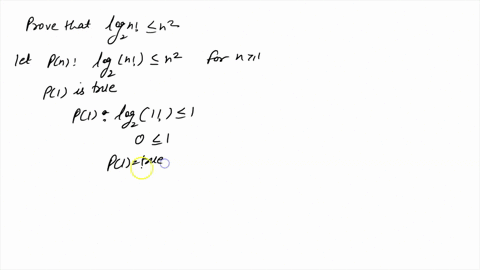 Prove that log₂ n! ≤ n²
let P(n): log₂ (n!) ≤ n² for n≥1
P(1) is true
P(1): log₂ (1!) ≤ 1
0 ≤ 1
P(1)=true